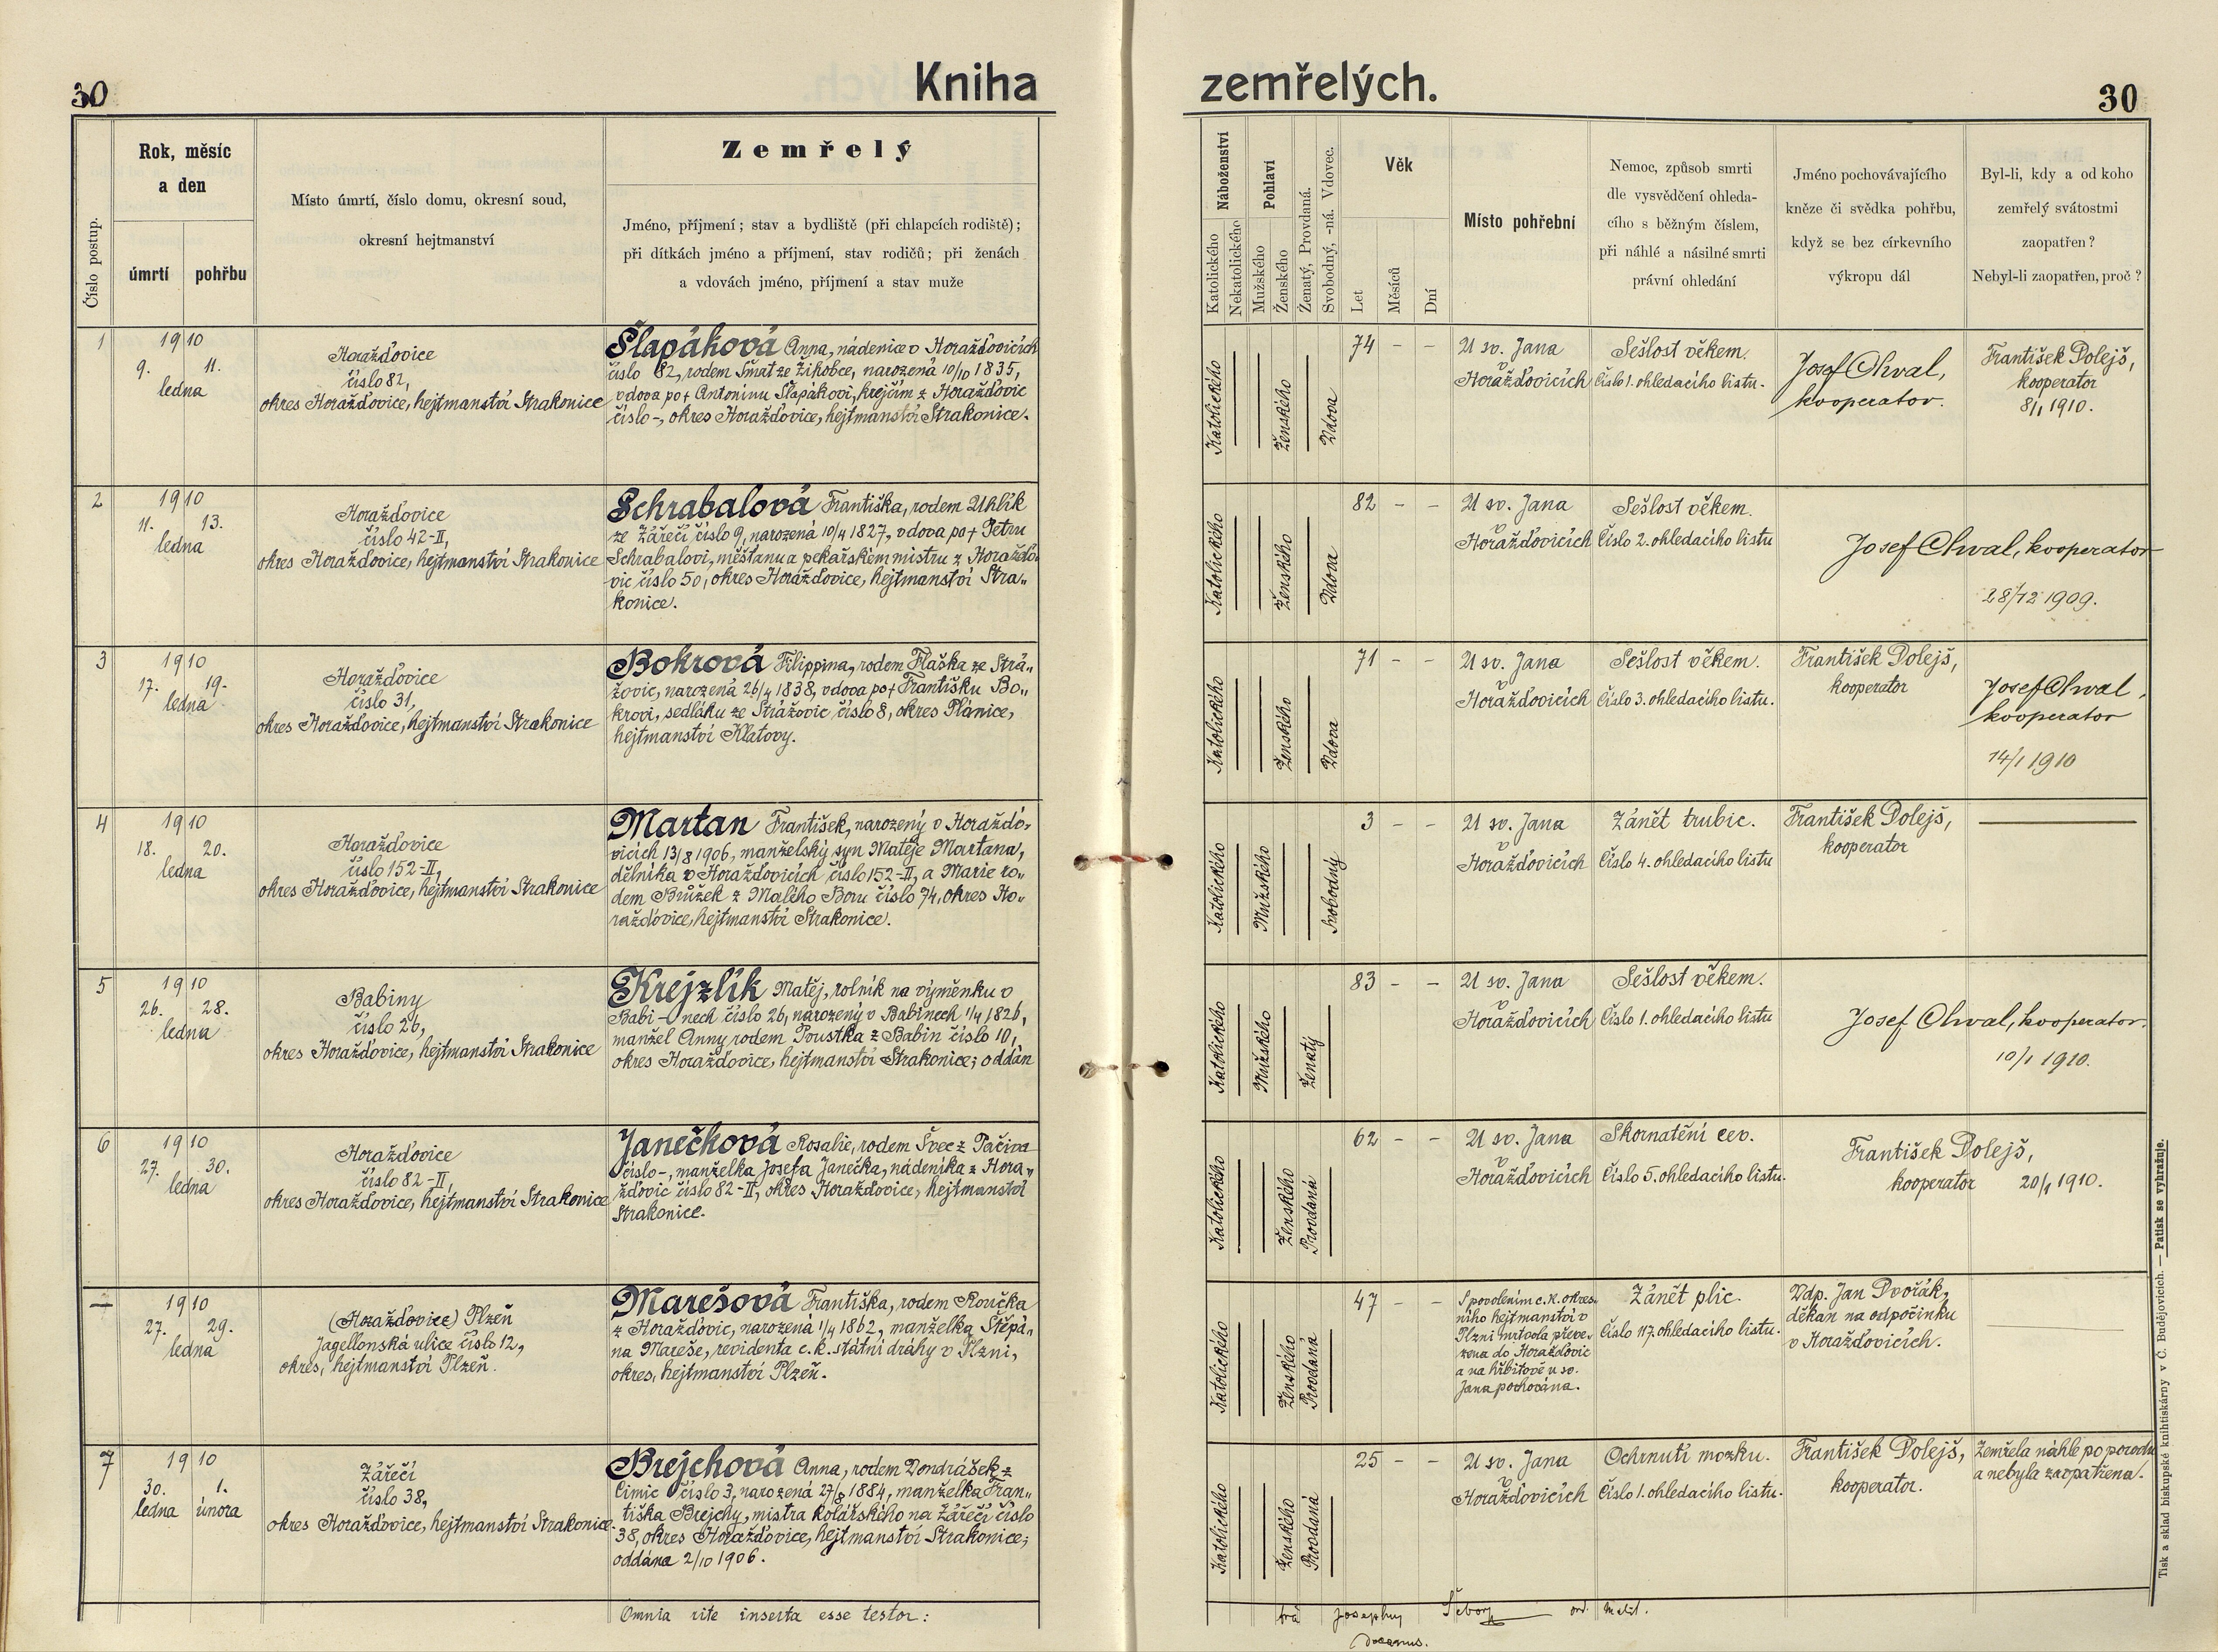 30
Kniha
zemřelých.
30
Číslo postup.
Rok, měsíc
a den
úmrtí
pohřbu
Místo úmrtí, číslo domu, okresní soud,
okresní hejtmanství
Zemřelý
Jméno, příjmení; stav a bydliště (při chlapcích rodiště);
při dítkách jméno a příjmení, stav rodičů; při ženách
a vdovách jméno, příjmení a stav muže
Náboženství
Katolického
Nekatolického
Pohlaví
Mužského
Ženského
Ženatý, Provdaná.
Svobodný, -ná. Vdovec.
Věk
Let
Měsíců
Dní
Místo pohřební
Nemoc, způsob smrti
dle vysvědčení ohleda-
cího s běžným číslem,
při náhlé a násilné smrti
právní ohledání
Jméno pochovávajícího
kněze či svědka pohřbu,
když se bez církevního
výkropu dál
Byl-li, kdy a od koho
zemřelý svátostmi
zaopatřen?
Nebyl-li zaopatřen, proč?
1
1910
9. 11.
ledna
Horažďovice
číslo 82,
okres Horažďovice, hejtmanství Strakonice
Šlapáková Anna, nádenice v Horažďovicích
číslo 82, rodem Šmat ze Žihobce, narozená 10/10 1835,
vdova po † Antonínu Šlapákovi, krejčím z Horažďovic
číslo -, okres Horažďovice, hejtmanství Strakonice.
Katolického
Ženského
Vdova
74 - -
U sv. Jana
v
Horažďovicích
Sešlost věkem.
Číslo 1. ohledacího listu.
Josef Chval,
kooperator.
František Dolejš,
kooperator
8/1 1910.
2
1910
11. 13.
ledna
Horažďovice
číslo 42-II,
okres Horažďovice, hejtmanství Strakonice
Schrabalová Františka, rodem Uhlík
ze Zářečí číslo 9, narozená 10/4 1827, vdova po † Petru
Schrabalovi, měšťanu a pekařském mistru z Horažďo-
vic číslo 50, okres Horažďovice, hejtmanství Stra-
konice.
Katolického
Ženského
Vdova
82 - -
U sv. Jana
v
Horažďovicích
Sešlost věkem.
Číslo 2. ohledacího listu
Josef Chval, kooperator
28/12 1909.
3
1910
17. 19.
ledna
Horažďovice
číslo 31,
okres Horažďovice, hejtmanství Strakonice
Bokrová Filippina, rodem Flaška ze Strá-
žovic, narozená 26/4 1838, vdova po † Františku Bo-
krovi, sedláku ze Strážovic číslo 8, okres Plánice,
hejtmanství Klatovy.
Katolického
Ženského
Vdova
71 - -
U sv. Jana
v
Horažďovicích
Sešlost věkem.
Číslo 3. ohledacího listu.
František Dolejš,
kooperator
Josef Chval,
kooperator
14/1 1910
4
1910
18. 20.
ledna
Horažďovice
číslo 152-II,
okres Horažďovice, hejtmanství Strakonice
Martan František, narozený v Horažďo-
vicích 13/8 1906, manželský syn Matěje Martana,
dělníka v Horažďovicích číslo 152-II, a Marie ro-
dem Brůžek z Malého Boru číslo 74, okres Ho-
ražďovice, hejtmanství Strakonice.
Katolického
Mužského
Svobodný
3 - -
U sv. Jana
v
Horažďovicích
Zánět trubic.
Číslo 4. ohledacího listu
František Dolejš,
kooperator
5
1910
26. 28.
ledna
Babiny
číslo 26,
okres Horažďovice, hejtmanství Strakonice
Krejzlík Matěj, rolník na výměnku v
Babi-nech číslo 26, narozený v Babinech 1/4 1826,
manžel Anny rodem Poustka z Babin číslo 10,
okres Horažďovice, hejtmanství Strakonice; oddán
Katolického
Mužského
Ženatý
83 - -
U sv. Jana
v
Horažďovicích
Sešlost věkem.
Číslo 1. ohledacího listu
Josef Chval, kooperator.
10/1 1910.
6
1910
27. 30.
ledna
Horažďovice
číslo 82-II,
okres Horažďovice, hejtmanství Strakonice
Janečková Rosalie, rodem Švec z Pačiva
číslo -, manželka Josefa Janečka, nádeníka z Hora-
žďovic číslo 82-II, okres Horažďovice, hejtmanství
Strakonice.
Katolického
Ženského
Provdaná
62 - -
U sv. Jana
v
Horažďovicích
Skornatění cev.
Číslo 5. ohledacího listu.
František Dolejš,
kooperator 20/1 1910.
—
1910
27. 29.
ledna
(Horažďovice) Plzeň
Jagellonská ulice číslo 12,
okres, hejtmanství Plzeň.
Marešová Františka, rodem Roučka
z Horažďovic, narozená 1/4 1862, manželka Štěpá-
na Mareše, revidenta c.k. státní dráhy v Plzni,
okres, hejtmanství Plzeň.
Katolického
Ženského
Provdaná
47 - -
S povolením c.k. okres-
ního hejtmanství v
Plzni mrtvola převe-
zena do Horažďovic
a na hřbitově u sv.
Jana pochována.
Zánět plic.
Číslo 117. ohledacího listu.
Vdp. Jan Dvořák,
děkan na odpočinku
v Horažďovicích.
7
1910
30. 1.
ledna února
Zářečí
číslo 38,
okres Horažďovice, hejtmanství Strakonice.
Brejchová Anna, rodem Vondrášek z
Čimic číslo 3, narozená 27/8 1884, manželka Fran-
tiška Brejchy, mistra kolářského na Zářečí číslo
38, okres Horažďovice, hejtmanství Strakonice;
oddána 2/10 1906.
Katolického
Ženského
Provdaná
25 - -
U sv. Jana
v
Horažďovicích
Ochrnutí mozku.
Číslo 1. ohledacího listu.
František Dolejš,
kooperator.
Zemřela náhle po porodu
a nebyla zaopatřena.
Omnia rite inserta esse testor:
Josephus
Decanus.
Tisk a sklad biskupské knihtiskárny v Č. Budějovicích. — Patisk se vyhražuje.